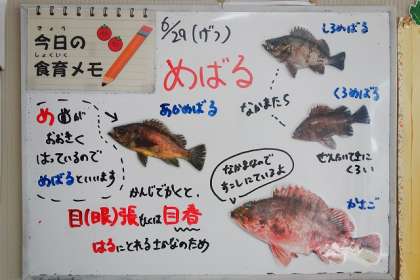 きょう
今日の
しょくいく
食育メモ
6/29(げつ)
めばる
しろめばる
なかまたち
くろめばる
ぜんたいてきに
くろい
あかめばる
めめが
おおきく
はっているので
めばるといいます
かんじでかくと、
目(眼)張もしくは目春
はるにとれるさかなのため
なかまなので
すこしにているよ
かさご